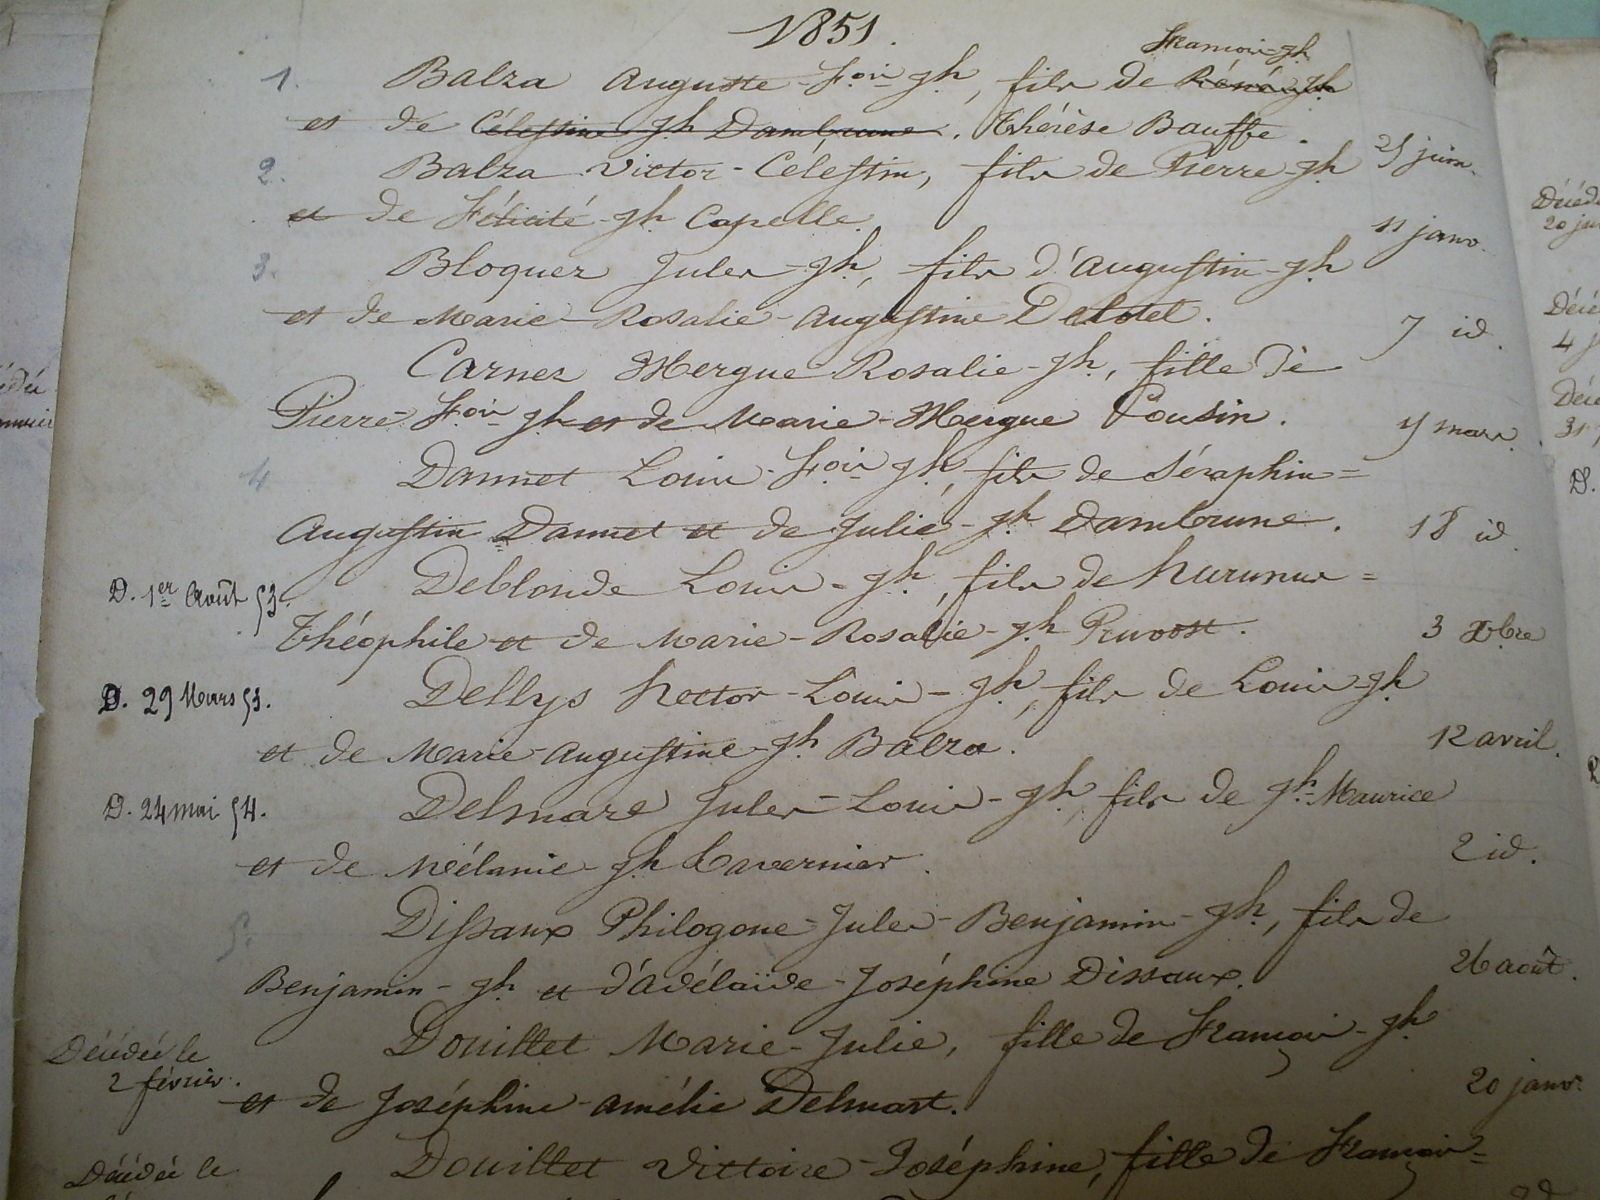 1851.
François-Jh
1. Balza Auguste-Fois-Jh, fils de René-Jh
et de Célestine Jh Dambrune. Thérèse Bauffe.
25 juin.
2. Balza Victor-Célestin, fils de Pierre-Jh
et de Félicité-Jh Capelle.
11 janv.
3. Bloquez Jules-Jh, fils d'Augustin-Jh
et de Marie-Rosalie-Augustine Delotel.
7 id.
Carnez Mergue Rosalie-Jh, fille de
Pierre-Fois-Jh et de Marie-Mergue Cousin.
15 mars.
4 Dannet Louis-Fois-Jh, fils de Séraphin=
Augustin Dannet et de Julie-Jh Dambrune.
18 id.
D. 1er Août 53.
Deblonde Louis-Jh, fils de
Théophile et de Marie-Rosalie-Jh Pruvost.
3 Xbre
D. 29 Mars 53.
Dellys hector-Louis-Jh, fils de Louis-Jh
et de Marie-Augustine-Jh Balza.
12 avril.
D. 24 mai 54.
Delmare Jules-Louis-Jh, fils de Jh-Maurice
et de Mélanie-Jh Cavernier.
2 id.
5. Dissaux Philogone-Jules-Benjamin-Jh, fils de
Benjamin-Jh et d'Adélaïde-Joséphine Dissaux.
26 août.
Décédée le
2 février.
Douillet Marie-Julie, fille de François-Jh
et de Joséphine-Amélie Delmart.
20 janv.
Décédée le
Douillet Victoire-Joséphine, fille de François=